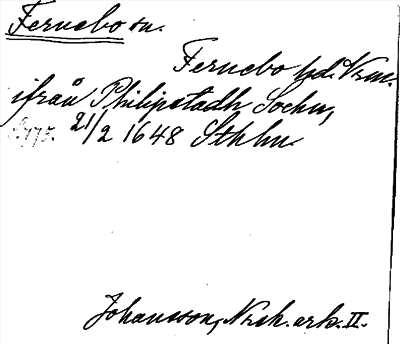 Fernebo sn.
Fernebo hd. Vrm.
ifrån Philipstadh Sochn,
21/2 1648 Sthlm.
Johansson, Noraskog. ark. II.